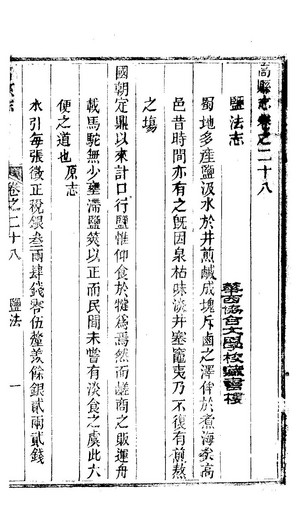 高縣志卷之二十八
華西協合大學校藏書樓
鹽法志
蜀地多產鹽汲水於井煎鹹成塊斥鹵之澤侔於煮海矣高
邑昔時間亦有之旣因泉枯味淡井塞竈夷乃不復有煎熬
之塲
國朝定鼎以來計口行鹽惟仰食於犍爲焉然而鹺商之販運舟
載馬駝無少壅滯鹽筴以正而民間未嘗有淡食之虞此六
便之道也原志
水引每張徵正稅銀叁兩肆錢零伍釐羨餘銀貳兩貳錢
卷之二十八 鹽法 一